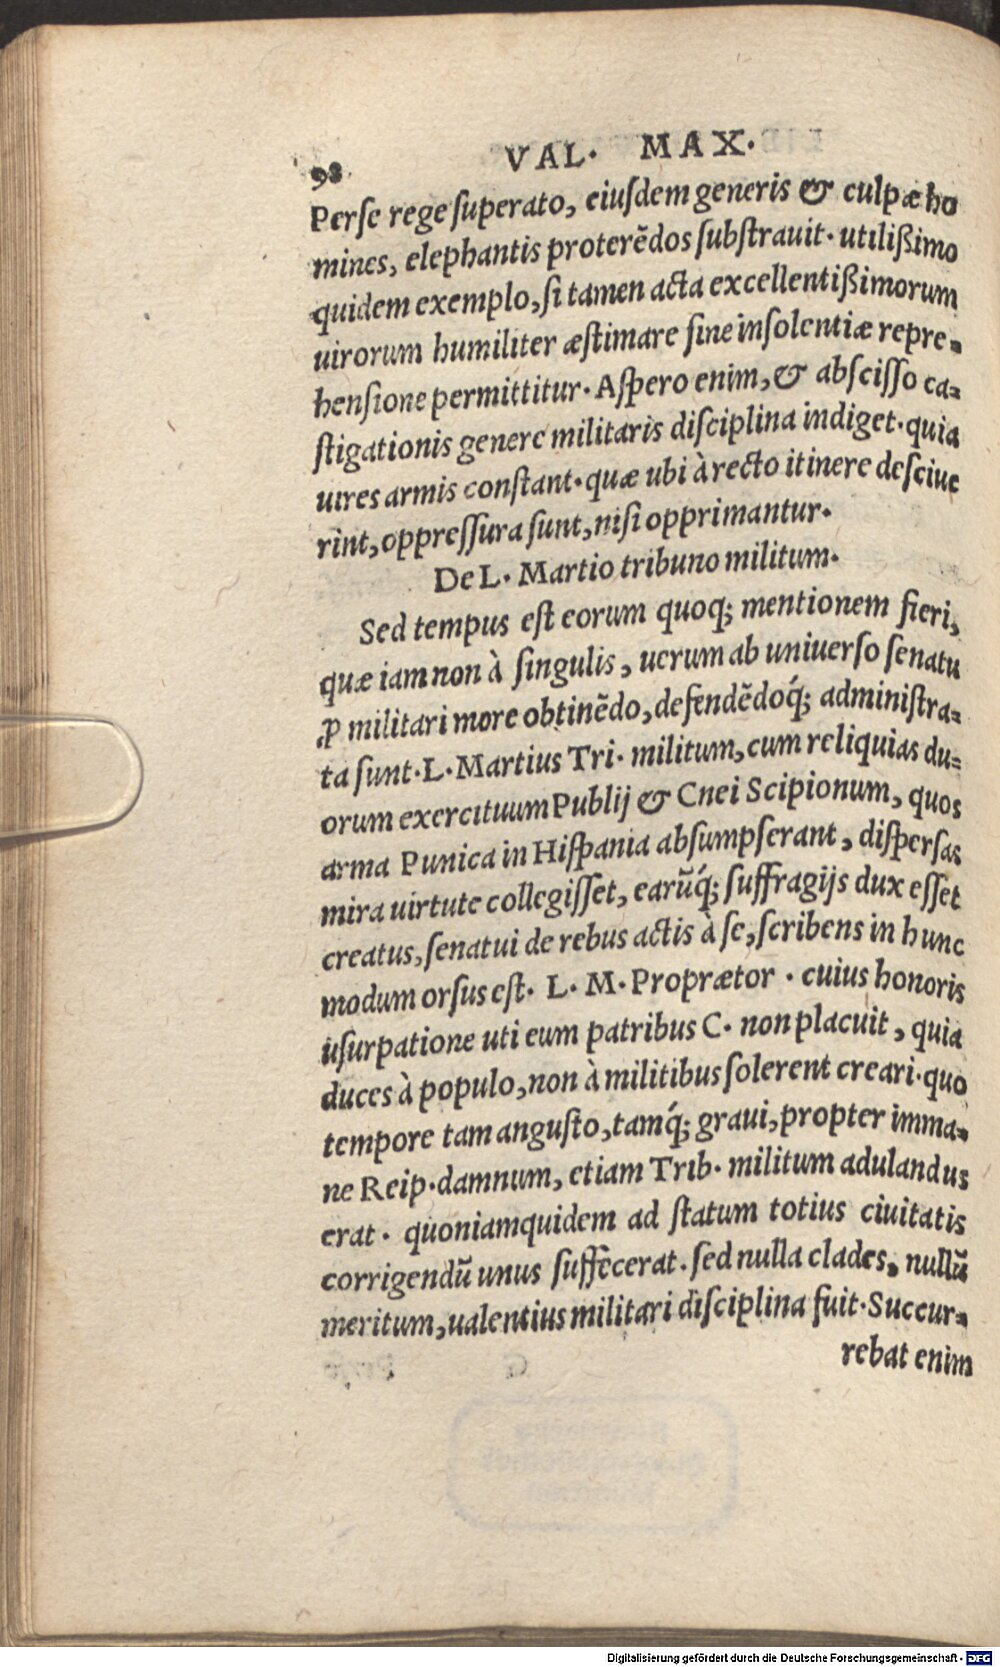 98 VAL. MAX.
Perse rege superato, eiusdem generis & culpæ ho
mines, elephantis proterẽdos substrauit. utilißimo
quidem exemplo, si tamen acta excellentißimorum
uirorum humiliter æstimare sine insolentiæ repre=
hensione permittitur. Aspero enim, & abscisso ca=
stigationis genere militaris disciplina indiget. quia
uires armis constant. quæ ubi à recto itinere desciue
rint, oppressura sunt, nisi opprimantur.
De L. Martio tribuno militum.
Sed tempus est eorum quoq; mentionem fieri,
quæ iam non à singulis, uerum ab uniuerso senatu
ꝓ militari more obtinẽdo, defendẽdoq́; administra=
ta sunt. L. Martius Tri. militum, cum reliquias du=
orum exercituum Publij & Cnei Scipionum, quos
arma Punica in Hispania absumpserant, dispersas
mira uirtute collegisset, earũq́; suffragijs dux esset
creatus, senatui de rebus actis à se, scribens in hunc
modum orsus est. L. M. Proprætor . cuius honoris
usurpatione uti eum patribus C. non placuit, quia
duces à populo, non à militibus solerent creari. quo
tempore tam angusto, tamq́; graui, propter imma=
ne Reip. damnum, etiam Trib. militum adulandus
erat. quoniamquidem ad statum totius ciuitatis
corrigendũ unus suffecerat. sed nulla clades, nullũ
meritum, ualentius militari disciplina fuit. Succur=
rebat enim
Digitalisierung gefördert durch die Deutsche Forschungsgemeinschaft - DFG